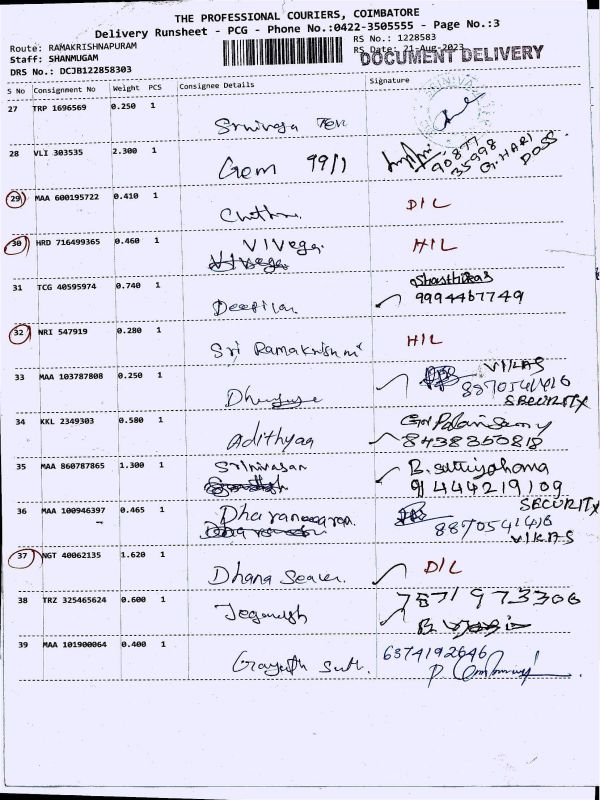 THE PROFESSIONAL COURIERS, COIMBATORE
Delivery Runsheet - PCG - Phone No.:0422-3505555 - Page No.:3
Route: RAMAKRISHNAPURAM
RS No.: 1228583
Staff: SHANMUGAM
RS Date: 21-Aug-2023
DOCUMENT DELIVERY
DRS No.: DCJB122858303
S No Consignment No Weight PCS Consignee Details Signature
27 TRP 1696569 0.250 1
28 VLI 303535 2.300 1 Gem 99/1 90877 35998 G. HARI DOSS
29 MAA 600195722 0.410 1 D/L
30 HRD 716499365 0.460 1 VIVega. H/L
31 TCG 40595974 0.740 1 9994467749
32 NRI 547919 0.280 1 Sri Ramakrishna H/L
33 MAA 103787808 0.250 1 VIKAS
8870541416
SECURITY
34 KKL 2349303 0.580 1 Adithyaa
8438350818
35 MAA 860787865 1.300 1 Srinivasan
9444219109
36 MAA 100946397 0.465 1 SECURITY
8870541416
VIKAS
37 NGT 40062135 1.620 1 D/L
38 TRZ 325465624 0.600 1 7871973306
39 MAA 101900064 0.400 1 6374192646